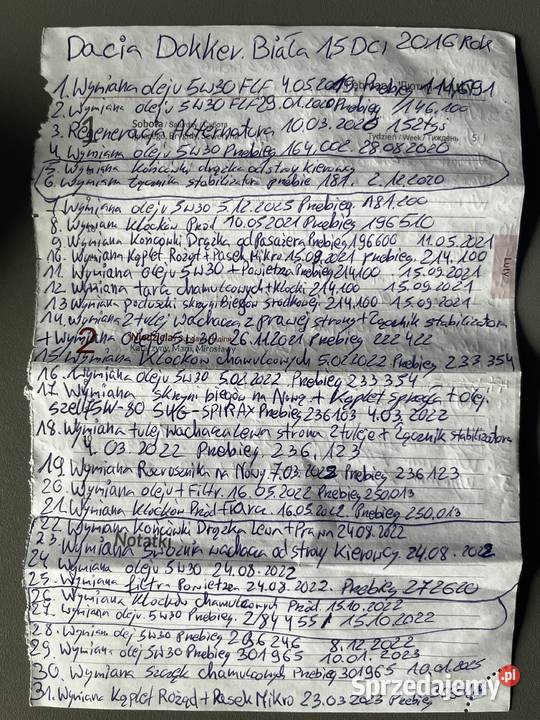 Dacia Dokker. Biała 1,5 Dci 2016 Rok
1. Wymiana oleju 5w30 ELF 4.05.2019 Przebieg 111,591
2. Wymiana oleju 5w30 ELF 29.01.2020 Przebieg 146.100
3. Regeneracja Alternatora 10.03.2020 152tys
Sobota
Tydzień / Week / Тиждень 5
4. Wymiana oleju 5w30 Przebieg 164,002 28.08.2020
5. Wymiana Końcówki drążka od strony Kierowcy
6. Wymiana Łącznik stabilizatora przebieg 181. 2.12.2020
7 Wymiana oleju 5w30 5.12.2025 Przebieg. 181.200
8. Wymiana Klocków Przód 10.05.2021 Przebieg 196510
9 Wymiana Końcówki Drążka od Pasażera Przebieg 196600 11.05.2021
10. Wymiana Kąplet Rozył + Pasek Mikro 15.09.2021 Przebieg. 214.100
11. Wymiana oleju 5w30 + Powietrza Przebieg 214100 15.09.2021
Luty
12 Wymiana tarcz chamulcowych + Klocki 214.100 15.09.2021
13 Wymiana poduszki skrzyni Biegów środkowej 214.100 15.09.2021
14. Wymiana 2 tulej wachacza z prawej strony + Łącznik stabilizatora
1
2
Niedziela
Karzyny, Marii, Mirosławy
+ Wymiana oleju 5w30 26.11.2021 Przebieg 222422
15. Wymiana Klocków chamulcowych 5.02.2022 Przebieg 233 354
16. Wymiana oleju 5w30 5.02.2022 Przebieg 233354
17. Wymiana skrzyni biegów na Nową + Kąplet sprzęgła + olej
szell 75W-80 SYG-SPIRAX Przebieg 236103 4.03.2022
18. Wymiana tulej wachacza Lewa strona 2 tuleje + Łącznik stabilizatora
4.03.2022 Przebieg. 236.123
19. Wymiana Rozrusznika na Nowy 7.03.2022 Przebieg 236123
20. Wymiana oleju + Filtr. 16.05.2022 Przebieg 250,013
21. Wymiana Klocków Przód + tarcz. 16.05.2022 Przebieg 250,013
22. Wymiana Końcówki Drążka Lewa + Prawa 24.08.2022
Notatki
23 Wymiana Sworznia wachacza od strony Kierowcy. 24.08.2022
24 Wymiana oleju 5w30 24.08.2022
25. Wymiana filtra Powietrza 24.08.2022. Przebieg 272620
26. Wymiana Klocków chamulcowych Przód. 15.10.2022
27. Wymiana oleju 5w30 Przebieg. 284455 15.10.2022
28. Wymiana olej 5w30 Przebieg 296246 8.12.2022
29. Wymiana olej 5w30 Przebieg 301965 10.01.2023
30. Wymiana szczęk chamulcowych Przebieg 301965 10.01.2025
31. Wymiana Kąplet Rożąd + Pasek Mikro 23.03.2023 Przebieg
Sprzedajemy.pl